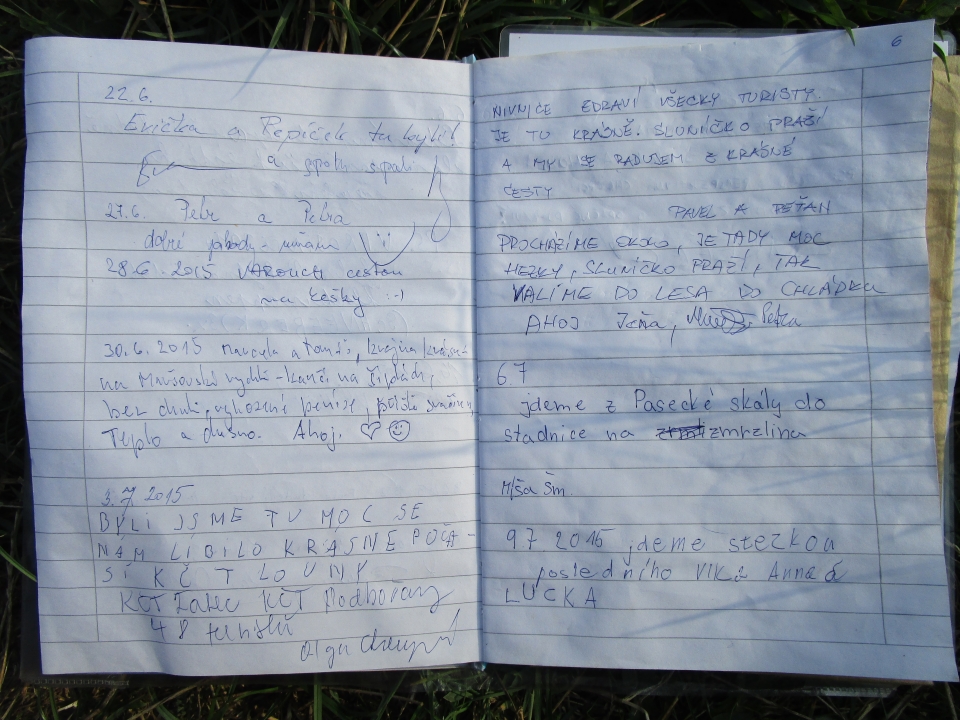 22.6.
Evička a Pepíček tu byli!
a
27.6. Petr a Petra
dobré
28.6. 2015 VAROUCH cestou
na kešky :-)
30.6. 2015 Marcela a Tomáš,
na
bez chuti, vyhozené peníze,
Teplo a dusno. Ahoj. ♡ ☺
3.7 2015
BYLI JSME TU MOC SE
NÁM LÍBILO KRÁSNÉ POČA-
SÍ KČT LOUNY
KČT Žatec KČT Podbořany
48 turistů
Olga
6
NIVNICE ZDRAVÍ VŠECKY TURISTY.
JE TU KRÁSNĚ. SLUNÍČKO PRAŽÍ
A MY SE RADUJEM Z KRÁSNÉ
CESTY
PAVEL A PEŤAN
PROCHÁZÍME OKOLO, JE TADY MOC
HEZKY, SLUNÍČKO PRAŽÍ, TAK
VALÍME DO LESA DO CHLÁDKU
AHOJ Petra
67
jdeme z Pasecké skály do
stadnice na zmrzlina
Míša Šm.
97 2015 jdeme stezkou
posledního VlKa Anna &
LUCKA